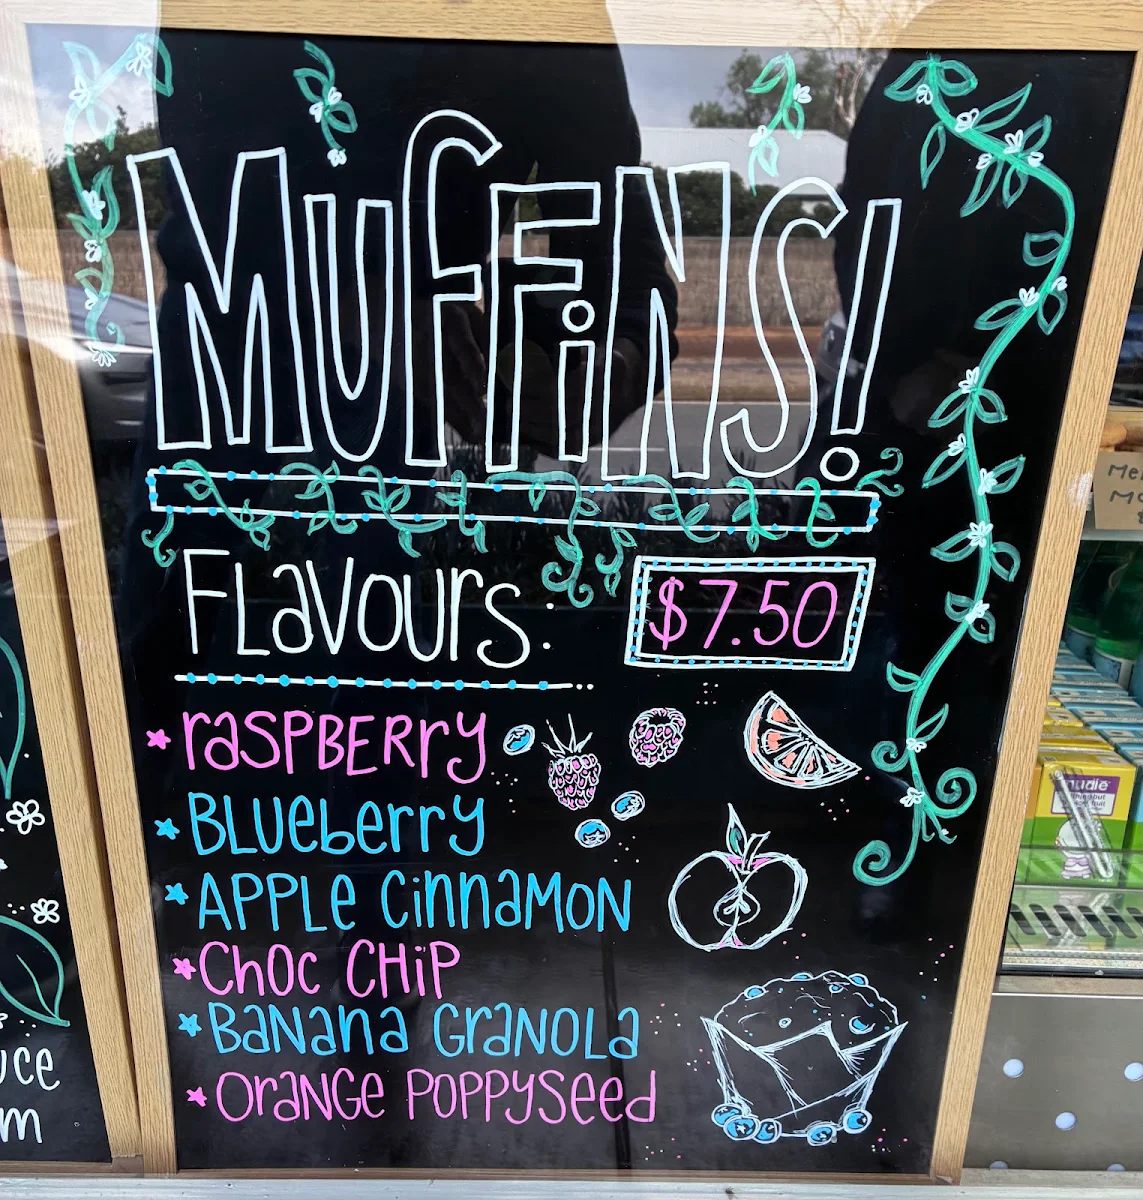 MUFFiNS!
FLavours:
$7.50
raSPBERry
BLUeberry
APPLE CinnaMON
ChOC CHiP
BaNana GraNOLa
OraNGE POPPYSeed
uce
m
Me
nudie